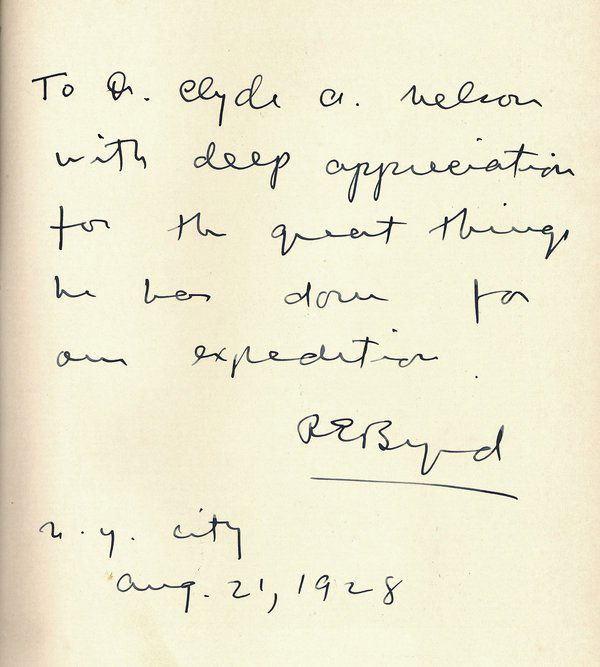 To Dr. Clyde A. Nelson
with deep appreciation
for the great things
he has done for
our expedition.
REByrd
N. Y. City
Aug. 21, 1928